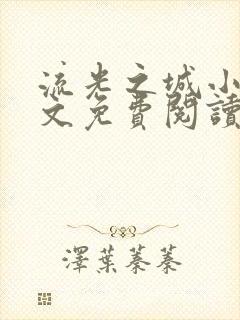 流光之城小
文免費閱讀
澤葉蓁蓁